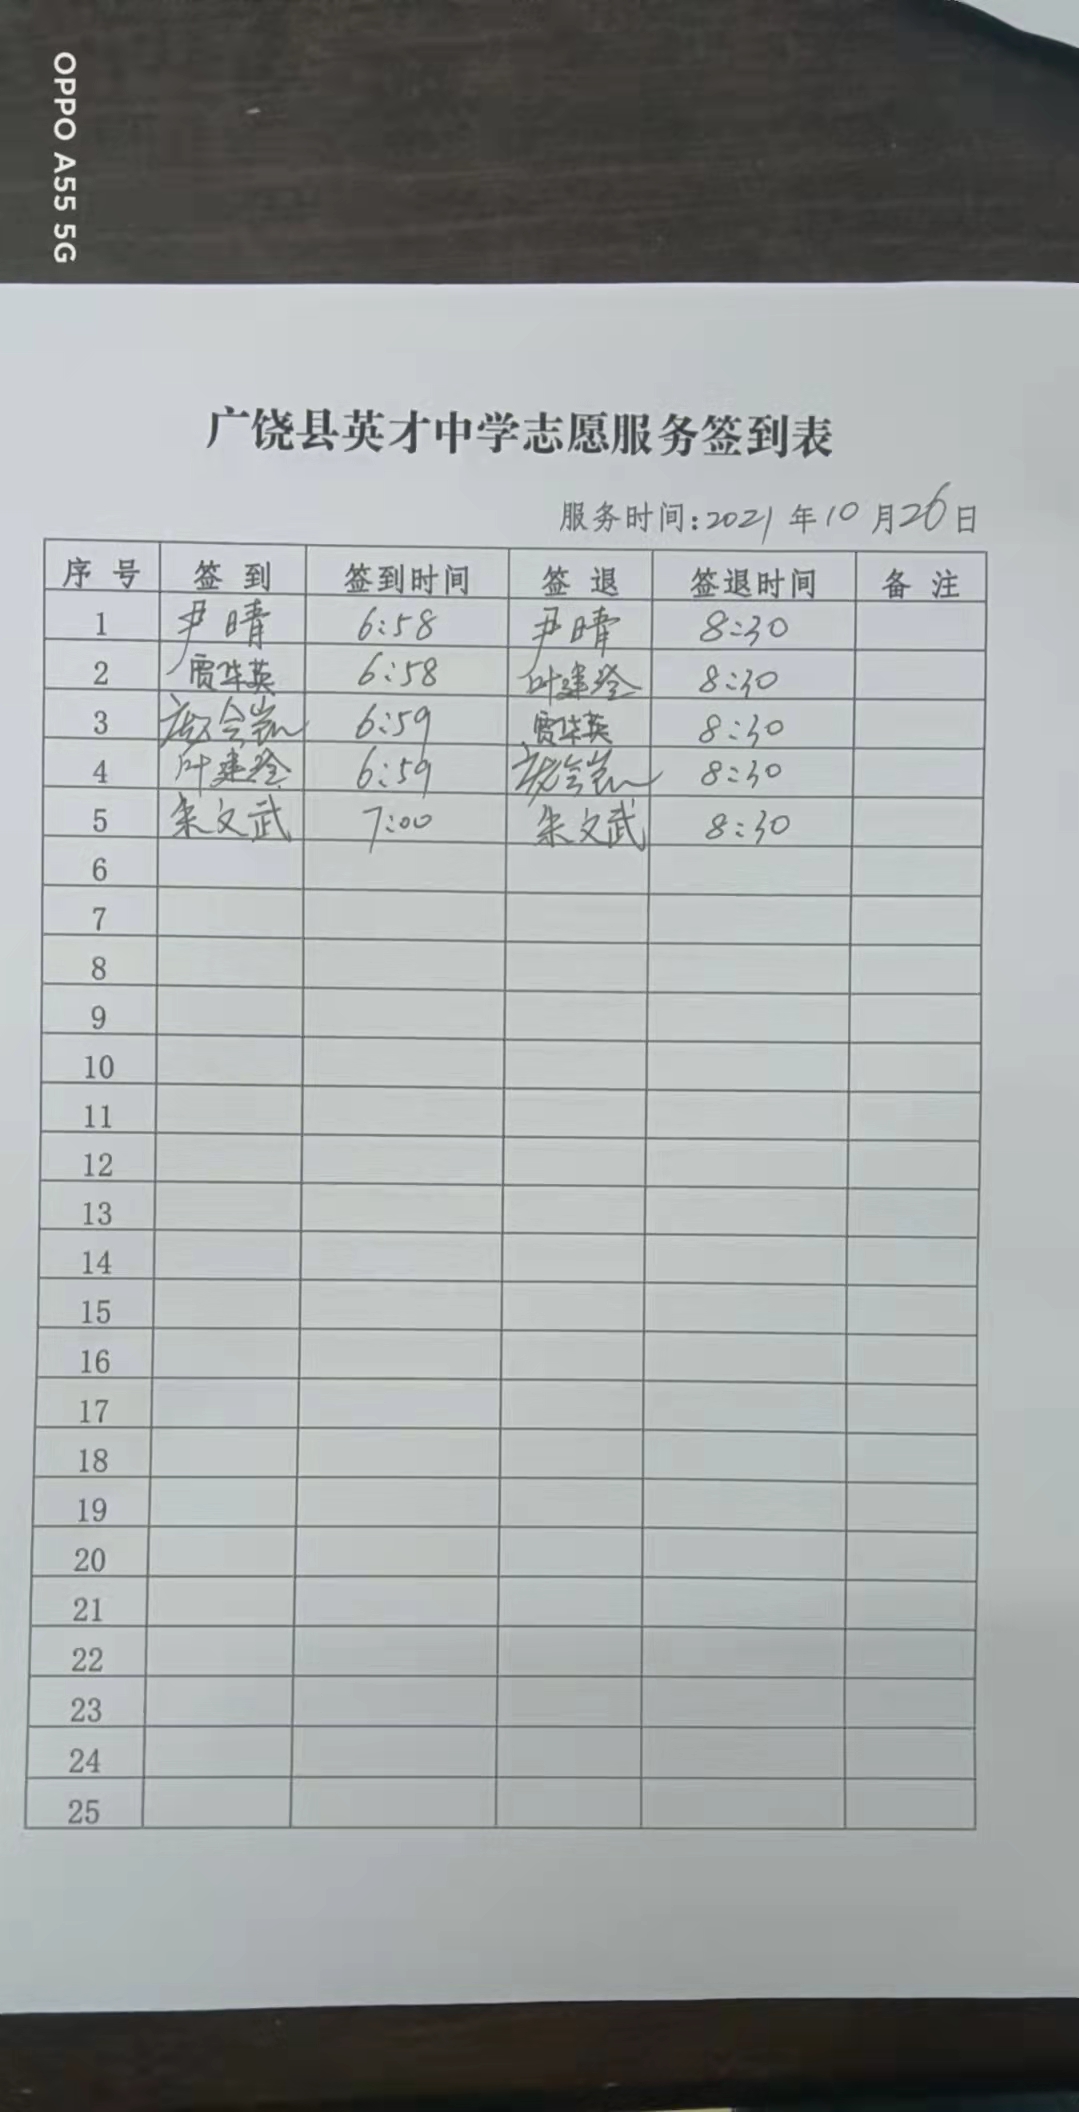 OPPO A55 5G
广饶县英才中学志愿服务签到表
服务时间:2021年10月26日
序号 签到 签到时间 签退 签退时间 备注
1 尹晴 6:58 尹晴 8:30
2 贾华英 6:58 叶建 8:30
3 6:59 贾华英 8:30
4 叶建 6:59 8:30
5 朱文武 7:00 朱文武 8:30
6
7
8
9
10
11
12
13
14
15
16
17
18
19
20
21
22
23
24
25